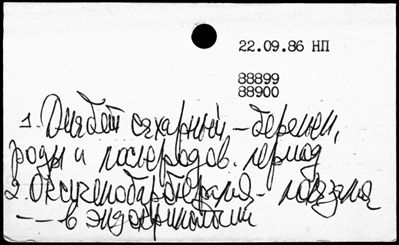 22.09.86 НП
88899
88900
1. Диабет сахарный - беремен,
роды и послеродов. период
2. Оксигенобаротерапия - показания
- - в эндокринологии